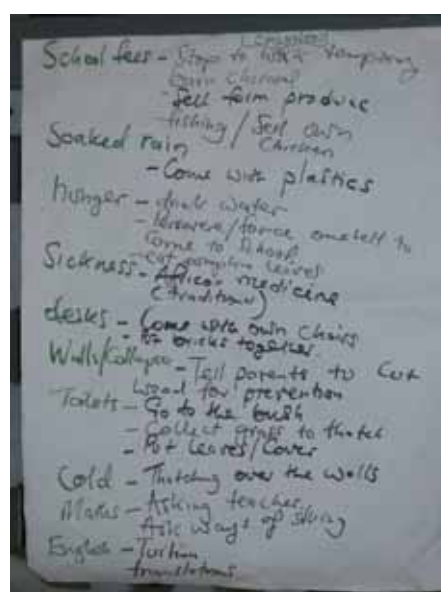 School fees - Stops to work temporary
Burn charcoal
- Sell farm produce
fishing / Sell own
Chicken
Soaked rain
- Come with plastics
hunger - drink water
- persevere/force oneself to
Come to school
- eat pumpkin leaves
Sickness - African medicine
(traditional)
desks - Come with own chairs
- Put bricks together
Walls/Collapse - Tell parents to Cut
wood for prevention
Toilets - Go to the bush
- Collect grass to thatch
- Put leaves/Cover
Cold - Thatching over the walls
Maths - Asking teacher
Ask ways of
English - Tuition
translations